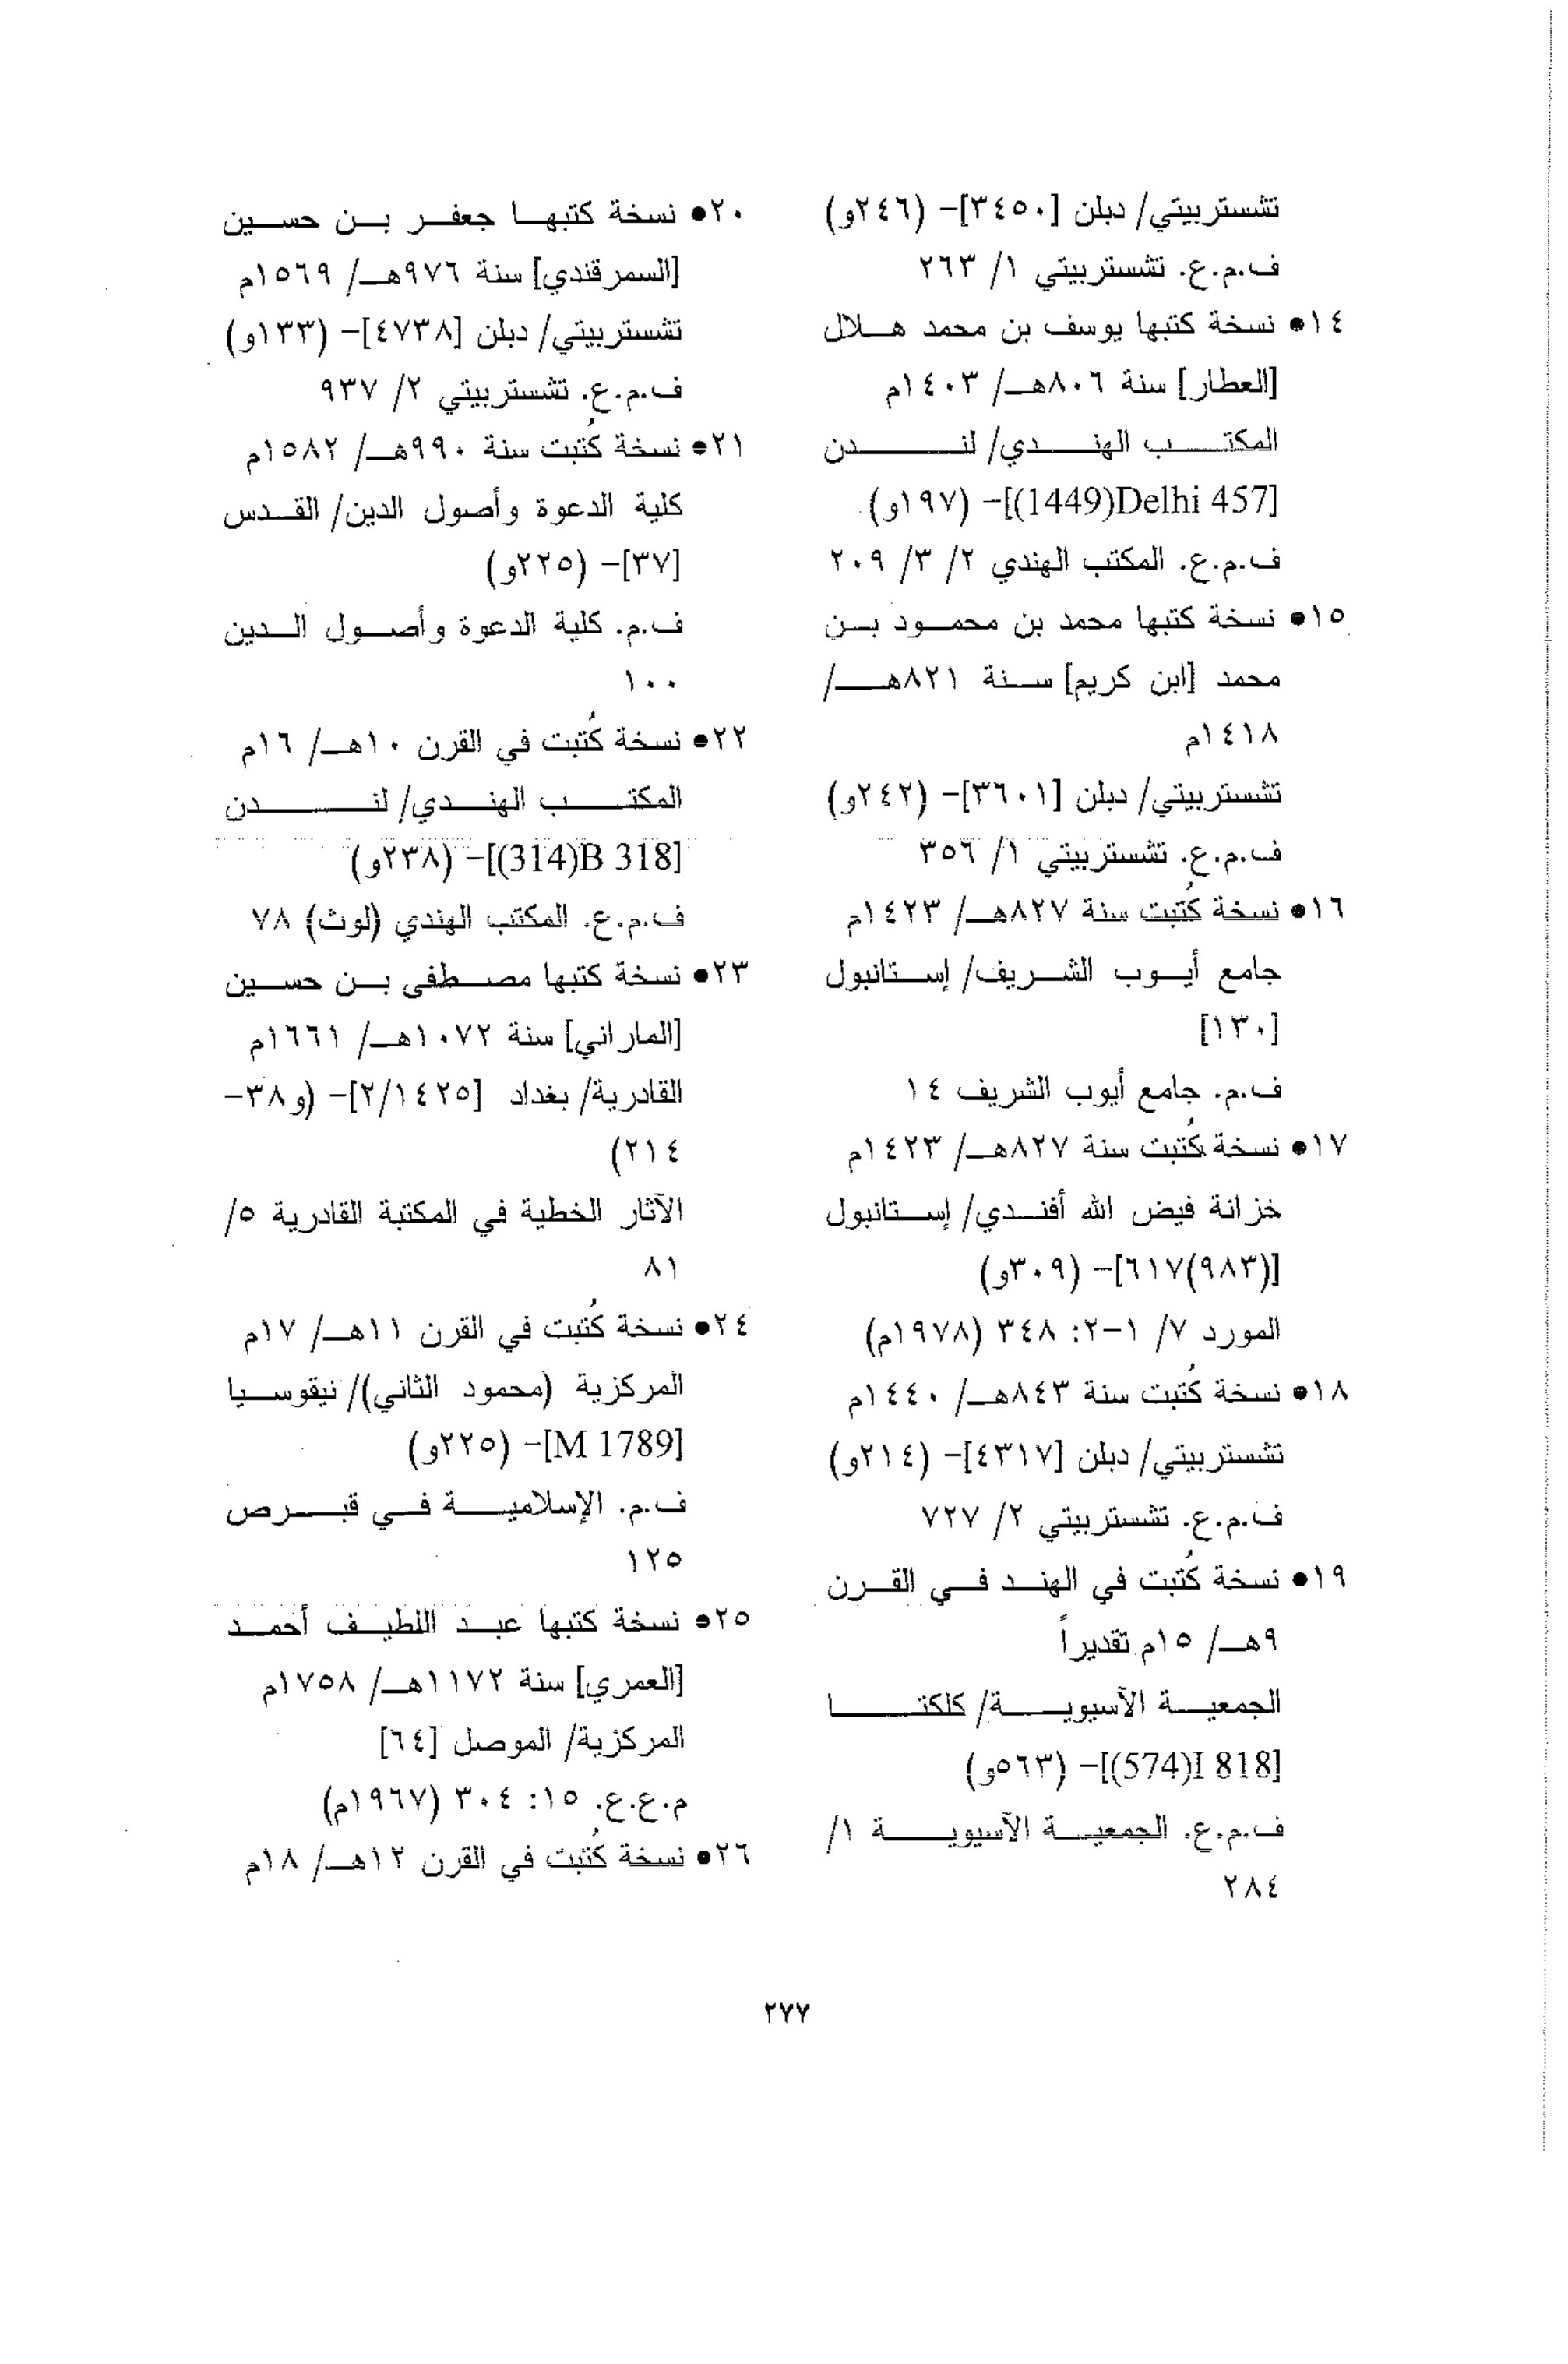 تشستربيتي/ دبلن [٣٤٥٠]- (٢٤٦و)
ف.م.ع. تشستربيتي ١/ ٢٦٣
١٤● نسخة كتبها يوسف بن محمد هلال
[العطار] سنة ٨٠٦هـ/ ١٤٠٣م
المكتب الهندي/ لندن
[Delhi 457(1449)]- (١٩٧و)
ف.م.ع. المكتب الهندي ٢/ ٣/ ٢٠٩
١٥● نسخة كتبها محمد بن محمود بن
محمد [ابن كريم] سنة ٨٢١هـ/
١٤١٨م
تشستربيتي/ دبلن [٣٦٠١]- (٢٤٢و)
ف.م.ع. تشستربيتي ١/ ٣٥٦
١٦● نسخة كُتبت سنة ٨٢٧هـ/ ١٤٢٣م
جامع أيوب الشريف/ إستانبول
[١٣٠]
ف.م. جامع أيوب الشريف ١٤
١٧● نسخة كُتبت سنة ٨٢٧هـ/ ١٤٢٣م
خزانة فيض الله أفندي/ إستانبول
[(٩٨٣)٦١٧]- (٣٠٩و)
المورد ٧/ ١-٢: ٣٤٨ (١٩٧٨م)
١٨● نسخة كُتبت سنة ٨٤٣هـ/ ١٤٤٠م
تشستربيتي/ دبلن [٤٣١٧]- (٢١٤و)
ف.م.ع. تشستربيتي ٢/ ٧٢٧
١٩● نسخة كُتبت في الهند في القرن
٩هـ/ ١٥م تقديراً
الجمعية الآسيوية/ كلكتا
[I 818(574)]- (٥٦٣و)
ف.م.ع. الجمعية الآسيوية ١/
٢٨٤
٢٠● نسخة كتبها جعفر بن حسين
[السمرقندي] سنة ٩٧٦هـ/ ١٥٦٩م
تشستربيتي/ دبلن [٤٧٣٨]- (١٣٣و)
ف.م.ع. تشستربيتي ٢/ ٩٣٧
٢١● نسخة كُتبت سنة ٩٩٠هـ/ ١٥٨٢م
كلية الدعوة وأصول الدين/ القدس
[٣٧]- (٢٢٥و)
ف.م. كلية الدعوة وأصول الدين
١٠٠
٢٢● نسخة كُتبت في القرن ١٠هـ/ ١٦م
المكتب الهندي/ لندن
[B 318(314)]- (٢٣٨و)
ف.م.ع. المكتب الهندي (لوث) ٧٨
٢٣● نسخة كتبها مصطفى بن حسين
[الماراني] سنة ١٠٧٢هـ/ ١٦٦١م
القادرية/ بغداد [٢/١٤٢٥]- (و٣٨-
٢١٤)
الآثار الخطية في المكتبة القادرية ٥/
٨١
٢٤● نسخة كُتبت في القرن ١١هـ/ ١٧م
المركزية (محمود الثاني)/ نيقوسيا
[M 1789]- (٢٢٥و)
ف.م. الإسلامية في قبرص
١٢٥
٢٥● نسخة كتبها عبد اللطيف أحمد
[العمري] سنة ١١٧٢هـ/ ١٧٥٨م
المركزية/ الموصل [٦٤]
م.ع.ع. ١٥: ٣٠٤ (١٩٦٧م)
٢٦● نسخة كُتبت في القرن ١٢هـ/ ١٨م
٢٧٧